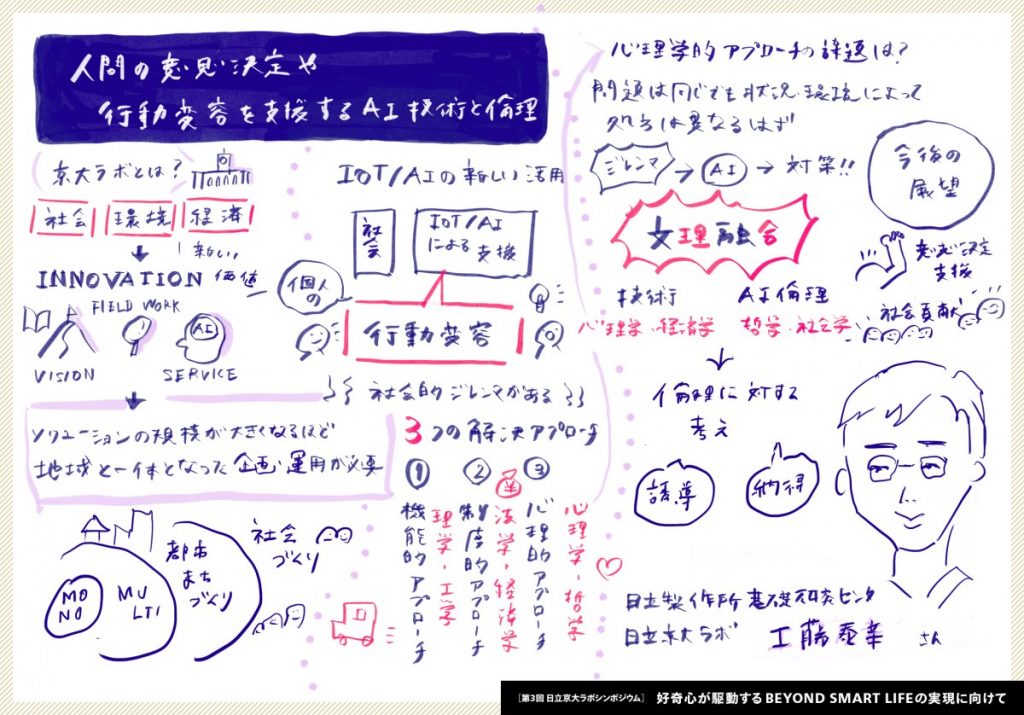 人間の意思決定や
行動変容を支援するAI技術と倫理
京大ラボとは?
社会 環境 経済
新しい
INNOVATION 価値
FIELD WORK
AI
VISION SERVICE
ソリューションの規模が大きくなるほど
地域と一体となった企画・運用が必要
MO
NO
MU
LTI
都市
まち
づくり
社会
づくり
IOT/AIの新しい活用
社会
IOT/AI
による
支援
個人
の
行動変容
社会的ジレンマがある
3つの解決アプローチ
①
機能的アプローチ
理学・工学
②
制度的アプローチ
法学・経済学
③
心理的アプローチ
心理学・哲学
心理学的アプローチの課題は?
問題は同じでも状況・環境によって
処方は異なるはず
ジレンマ → AI → 対策!!
文理融合
技術 AI倫理
心理学・経済学 哲学・社会学
倫理に対する
考え
誘導 納得
今後の
展望
意思決定
支援
社会貢献
日立製作所 基礎研究センタ
日立京大ラボ 工藤泰幸 さん
[第3回 日立京大ラボシンポジウム] 好奇心が駆動する BEYOND SMART LIFEの実現に向けて